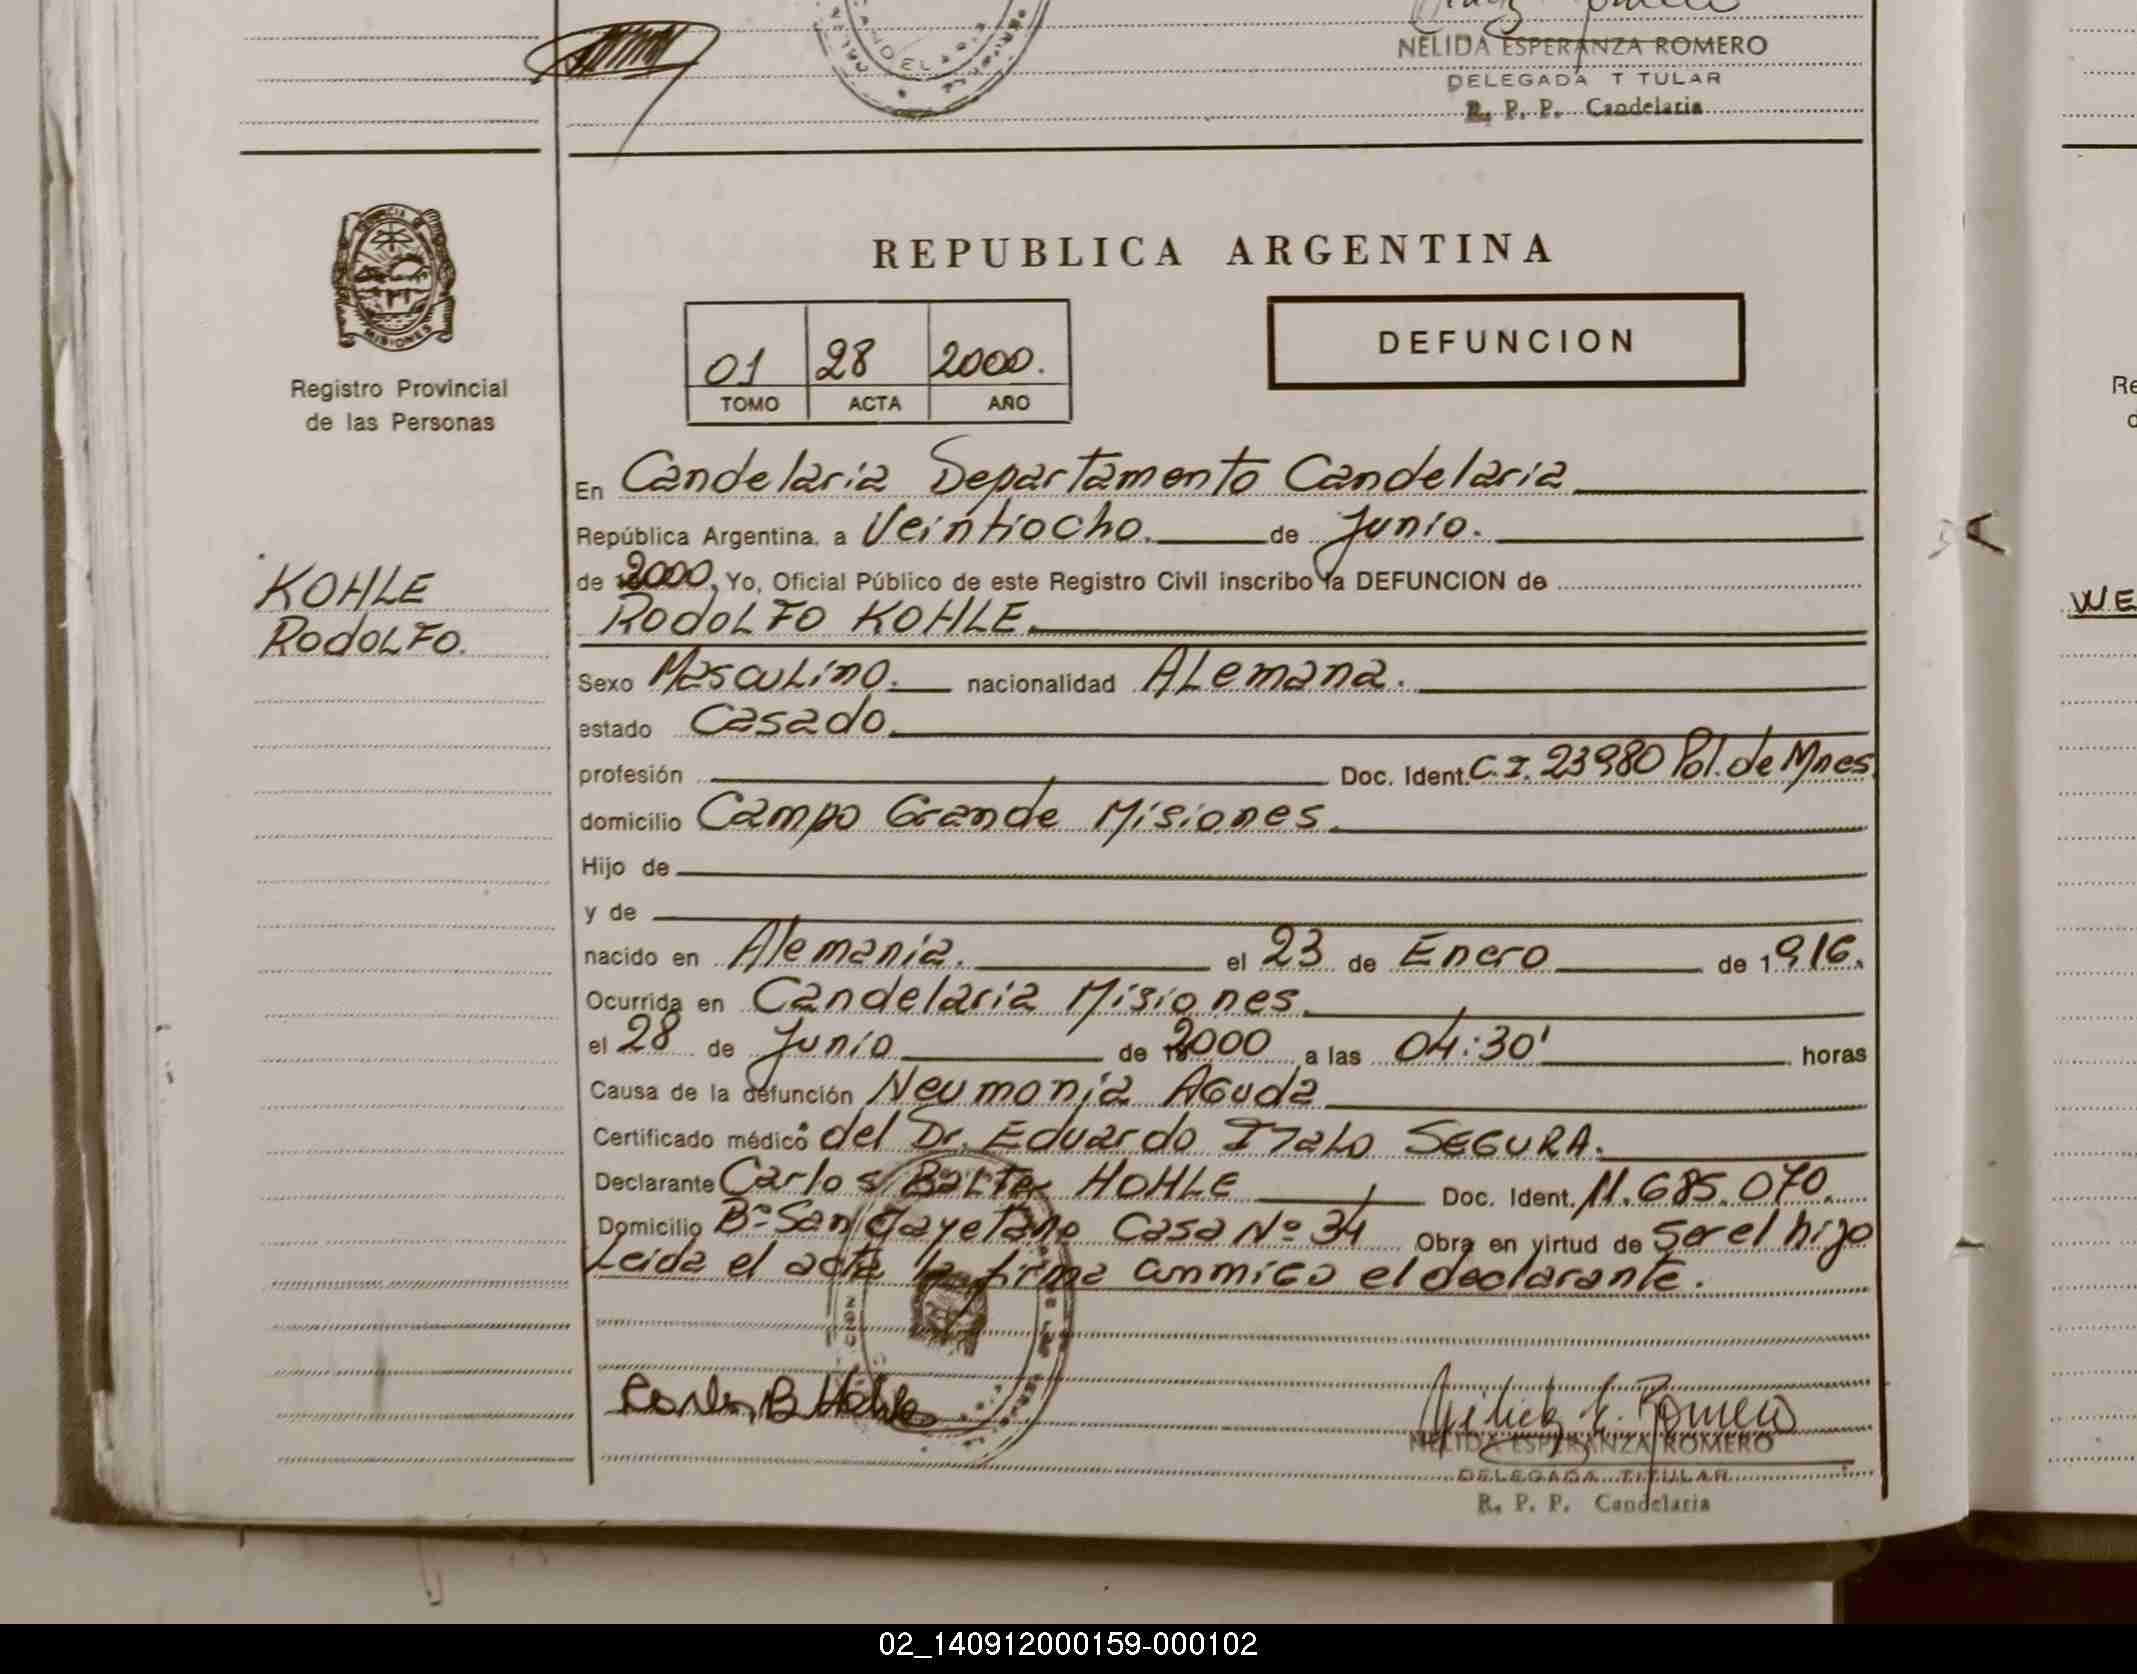 NELIDA ESPERANZA ROMERO
DELEGADA T TULAR
R. P. P. Candelaria
MISIONES
Registro Provincial
de las Personas
REPUBLICA ARGENTINA
01 28 2000.
TOMO ACTA AÑO
DEFUNCION
En Candelaria Departamento Candelaria
República Argentina, a Veintiocho. de Junio.
de 2000, Yo, Oficial Público de este Registro Civil inscribo la DEFUNCION de
KOHLE
RODOLFO.
RODOLFO KOHLE.
Sexo Masculino. nacionalidad Alemana.
estado Casado.
profesión Doc. Ident. C.I. 23980 Pol. de Mnes.
domicilio Campo Grande Misiones.
Hijo de
y de
nacido en Alemania. el 23 de Enero de 1916.
Ocurrida en Candelaria Misiones.
el 28 de Junio de 2000 a las 04:30' horas
Causa de la defunción Neumonía Aguda
Certificado médico del Dr. Eduardo Italo SEGURA.
Declarante Carlos HOHLE Doc. Ident. 11.685.070.
Domicilio Bº San Cayetano Casa Nº 34 Obra en virtud de ser el hijo
Leida el acta la firma conmigo el declarante.
Carlos B Hohle
Nélida E. Romero
NELIDA ESPERANZA ROMERO
DELEGADA TITULAR
R. P. P. Candelaria
WE
Re
02_140912000159-000102